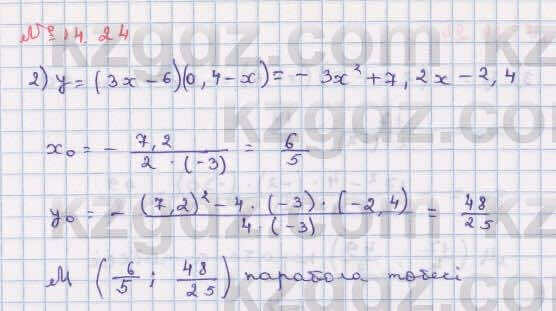 № 14.24
2) y = (3x – 6)(0,4 – x) = – 3x² + 7,2x – 2,4
x₀ = – 7,2 / 2 · (–3) = 6/5
y₀ = – (7,2)² – 4 · (–3) · (–2,4) / 4 · (–3) = 48/25
M (6/5 ; 48/25) парабола төбесі
kzgdz.com